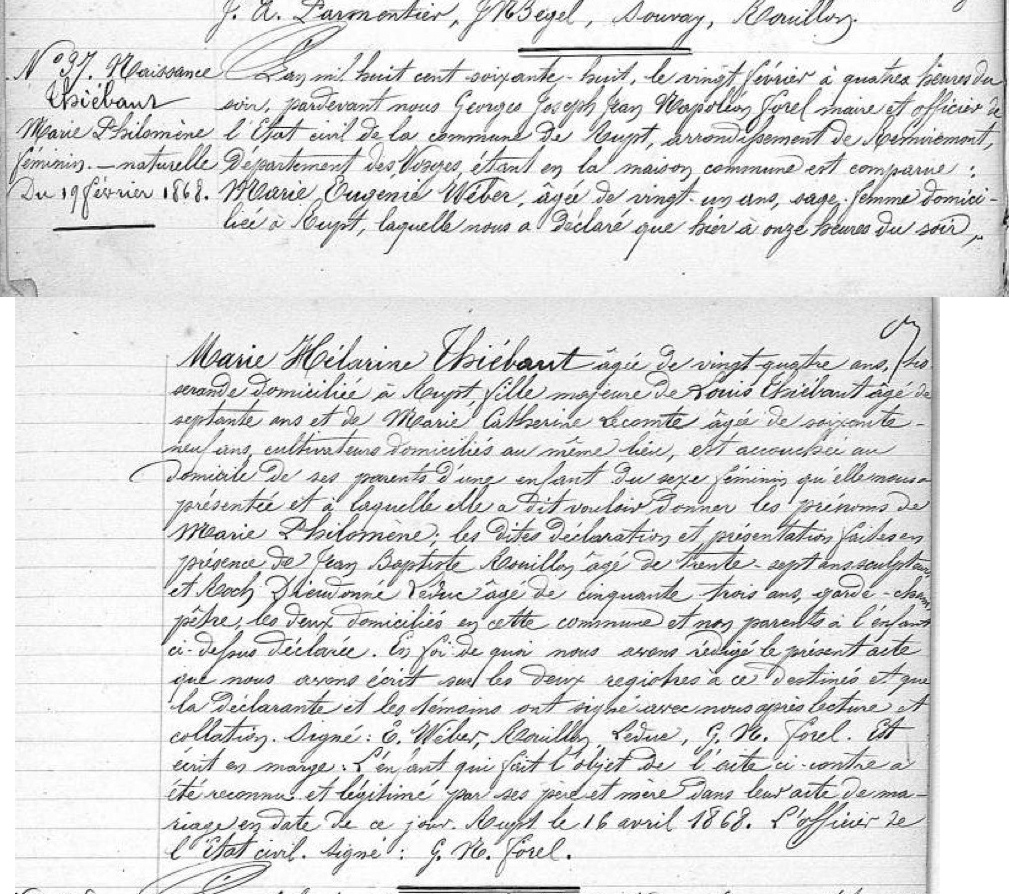 J. A. Parmentier, JNBégel, Souvay, Rouillon.
N° 37. Naissance
Thiébaut
Marie Philomène
féminin. — naturelle
Du 19 février 1868.
L'an mil huit cent soixante-huit, le vingt février à quatre heures du
soir, pardevant nous Georges Joseph Jean Napoléon Forel maire et officier de
l'Etat civil de la commune de Rupt, arrondissement de Remiremont,
Département des Vosges, étant en la maison commune est comparue :
Marie Eugenie Wéber, âgée de vingt-un ans, sage-femme domici-
liée à Rupt, laquelle nous a déclaré que hier à onze heures du soir,
Marie Hélarine Thiébaut âgée de vingt-quatre ans, tis-
serande domiciliée à Rupt fille majeure de Louis Thiébaut âgé de
septante ans et de Marie Catherine Lecomte âgée de soixante-
neuf ans, cultivateurs domiciliés au même lieu, est accouchée au
domicile de ses parents d'une enfant du sexe féminin qu'elle nous a
présentée et à laquelle elle a dit vouloir donner les prénoms de
Marie Philomène; les dites déclaration et présentation faites en
présence de Jean Baptiste Rouillon âgé de trente-sept ans sculpteur,
et Roch Dieudonné Leduc âgé de cinquante-trois ans, garde-cham-
pêtre, les deux domiciliés en cette commune et non parents à l'enfant
ci-dessus déclarée. En foi de quoi nous avons rédigé le présent acte
que nous avons écrit sur les deux registres à ce destinés et que
la déclarante et les témoins ont signé avec nous après lecture et
collation. Signé : E. Wéber, Rouillon, Leduc, G. N. Forel. Est
écrit en marge : L'enfant qui fait l'objet de l'acte ci-contre a
été reconnu et légitimé par ses père et mère dans leur acte de ma-
riage en date de ce jour. Rupt le 16 avril 1868. L'officier de
l'Etat civil. Signé : G. N. Forel.